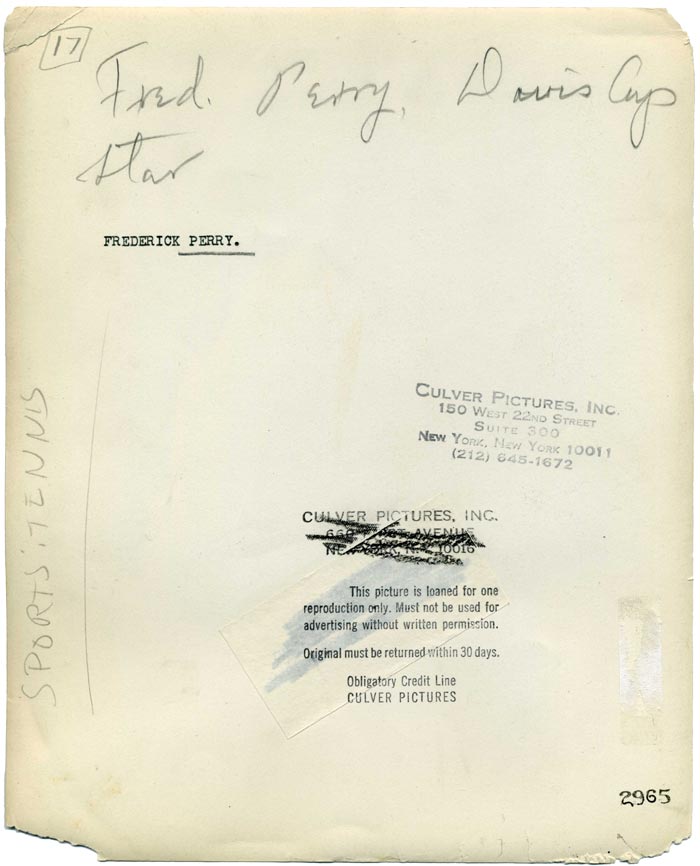 17
Fred. Perry, Davis Cup
star
FREDERICK PERRY.
SPORTS: TENNIS
CULVER PICTURES, INC.
150 WEST 22ND STREET
SUITE 300
NEW YORK, NEW YORK 10011
(212) 645-1672
CULVER PICTURES, INC.
660 FIRST AVENUE
NEW YORK, N.Y. 10016
This picture is loaned for one
reproduction only. Must not be used for
advertising without written permission.
Original must be returned within 30 days.
Obligatory Credit Line
CULVER PICTURES
2965